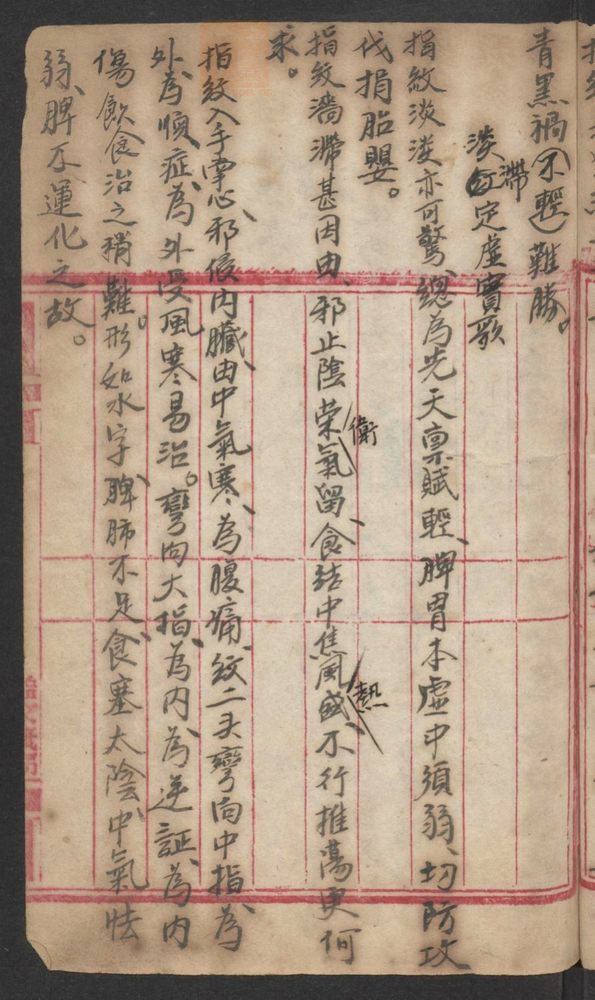 青黑禍不輕難勝。
淡滯定虛實歌
指紋淡淡亦可驚、總為先天禀賦輕、脾胃本虛中須弱、切防攻
伐損胎嬰。
指紋濇滯甚因由、邪止陰榮衛氣留、食結中焦風熱盛、不行推蕩更何
求。
指紋入手掌心、邪侵内臟、由中氣寒、為腹痛、紋二头彎向中指、為
外為順症、為外受風寒易治。彎向大指、為内、為逆証、為内
傷飲食治之稍難。形如水字、脾肺不足、食塞太陰、中氣怯
弱、脾不運化之故。